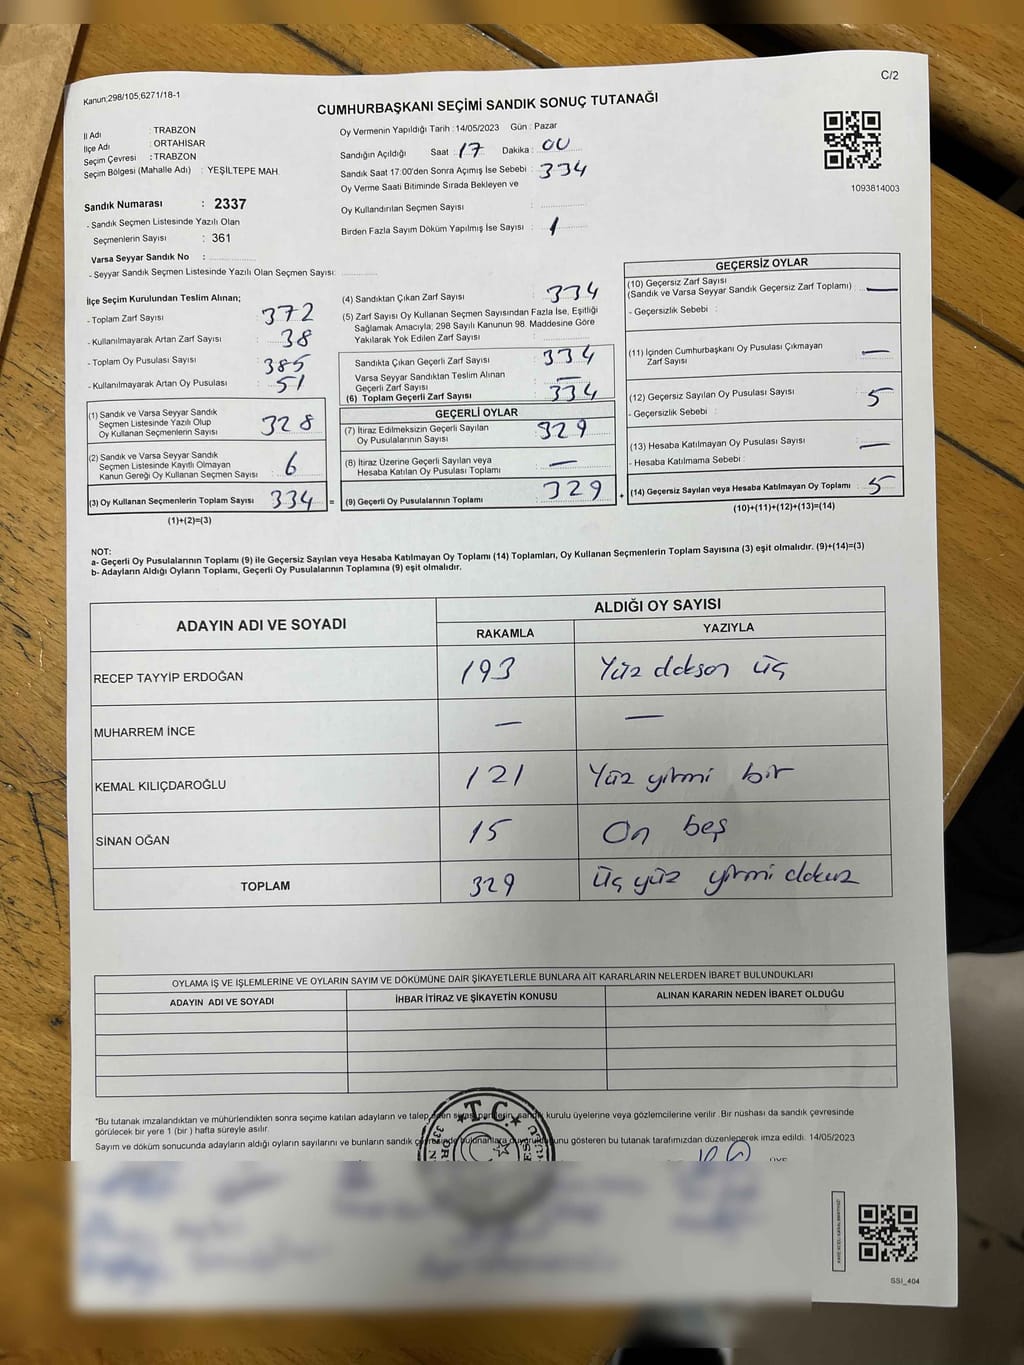 C/2
Kanun:298/105,6271/18-1
CUMHURBAŞKANI SEÇİMİ SANDIK SONUÇ TUTANAĞI
İl Adı : TRABZON
İlçe Adı : ORTAHİSAR
Seçim Çevresi : TRABZON
Seçim Bölgesi (Mahalle Adı) : YEŞİLTEPE MAH.
Sandık Numarası : 2337
- Sandık Seçmen Listesinde Yazılı Olan
Seçmenlerin Sayısı : 361
Varsa Seyyar Sandık No :
- Seyyar Sandık Seçmen Listesinde Yazılı Olan Seçmen Sayısı:
Oy Vermenin Yapıldığı Tarih : 14/05/2023 Gün : Pazar
Sandığın Açıldığı Saat : 17 Dakika : 00
Sandık Saat 17:00'den Sonra Açımış İse Sebebi : 334
Oy Verme Saati Bitiminde Sırada Bekleyen ve
Oy Kullandırılan Seçmen Sayısı :
Birden Fazla Sayım Döküm Yapılmış İse Sayısı : 1
1093814003
İlçe Seçim Kurulundan Teslim Alınan;
- Toplam Zarf Sayısı : 372
- Kullanılmayarak Artan Zarf Sayısı : 38
- Toplam Oy Pusulası Sayısı : 385
- Kullanılmayarak Artan Oy Pusulası : 51
(1) Sandık ve Varsa Seyyar Sandık
Seçmen Listesinde Yazılı Olup
Oy Kullanan Seçmenlerin Sayısı : 328
(2) Sandık ve Varsa Seyyar Sandık
Seçmen Listesinde Kayıtlı Olmayan
Kanun Gereği Oy Kullanan Seçmen Sayısı : 6
(3) Oy Kullanan Seçmenlerin Toplam Sayısı : 334 =
(1)+(2)=(3)
(4) Sandıktan Çıkan Zarf Sayısı : 334
(5) Zarf Sayısı Oy Kullanan Seçmen Sayısından Fazla İse, Eşitliği
Sağlamak Amacıyla; 298 Sayılı Kanunun 98. Maddesine Göre
Yakılarak Yok Edilen Zarf Sayısı :
Sandıkta Çıkan Geçerli Zarf Sayısı : 334
Varsa Seyyar Sandıktan Teslim Alınan
Geçerli Zarf Sayısı : —
(6) Toplam Geçerli Zarf Sayısı : 334
GEÇERLİ OYLAR
(7) İtiraz Edilmeksizin Geçerli Sayılan
Oy Pusulalarının Sayısı : 329
(8) İtiraz Üzerine Geçerli Sayılan veya
Hesaba Katılan Oy Pusulası Toplamı : —
(9) Geçerli Oy Pusulalarının Toplamı : 329 +
GEÇERSİZ OYLAR
(10) Geçersiz Zarf Sayısı
(Sandık ve Varsa Seyyar Sandık Geçersiz Zarf Toplamı) : —
- Geçersizlik Sebebi :
(11) İçinden Cumhurbaşkanı Oy Pusulası Çıkmayan
Zarf Sayısı : —
(12) Geçersiz Sayılan Oy Pusulası Sayısı : 5
- Geçersizlik Sebebi :
(13) Hesaba Katılmayan Oy Pusulası Sayısı : —
- Hesaba Katılmama Sebebi :
(14) Geçersiz Sayılan veya Hesaba Katılmayan Oy Toplamı : 5
(10)+(11)+(12)+(13)=(14)
NOT:
a- Geçerli Oy Pusulalarının Toplamı (9) ile Geçersiz Sayılan veya Hesaba Katılmayan Oy Toplamı (14) Toplamları, Oy Kullanan Seçmenlerin Toplam Sayısına (3) eşit olmalıdır. (9)+(14)=(3)
b- Adayların Aldığı Oyların Toplamı, Geçerli Oy Pusulalarının Toplamına (9) eşit olmalıdır.
ADAYIN ADI VE SOYADI ALDIĞI OY SAYISI
RAKAMLA YAZIYLA
RECEP TAYYİP ERDOĞAN 193 Yüz doksan üç
MUHARREM İNCE — —
KEMAL KILIÇDAROĞLU 121 Yüz yirmi bir
SİNAN OĞAN 15 On beş
TOPLAM 329 Üç yüz yirmi dokuz
OYLAMA İŞ VE İŞLEMLERİNE VE OYLARIN SAYIM VE DÖKÜMÜNE DAİR ŞİKAYETLERLE BUNLARA AİT KARARLARIN NELERDEN İBARET BULUNDUKLARI
ADAYIN ADI VE SOYADI İHBAR İTİRAZ VE ŞİKAYETİN KONUSU ALINAN KARARIN NEDEN İBARET OLDUĞU
*Bu tutanak imzalandıktan ve mühürlendikten sonra seçime katılan adayların ve talep eden siyasi partilerin, sandık kurulu üyelerine veya gözlemcilerine verilir. Bir nüshası da sandık çevresinde
görülecek bir yere 1 (bir) hafta süreyle asılır.
Sayım ve döküm sonucunda adayların aldığı oyların sayılarını ve bunların sandık çevresinde bulunanlara duyurulduğunu gösteren bu tutanak tarafımızdan düzenlenerek imza edildi. 14/05/2023
T.C.
ÜYE
SSI_404